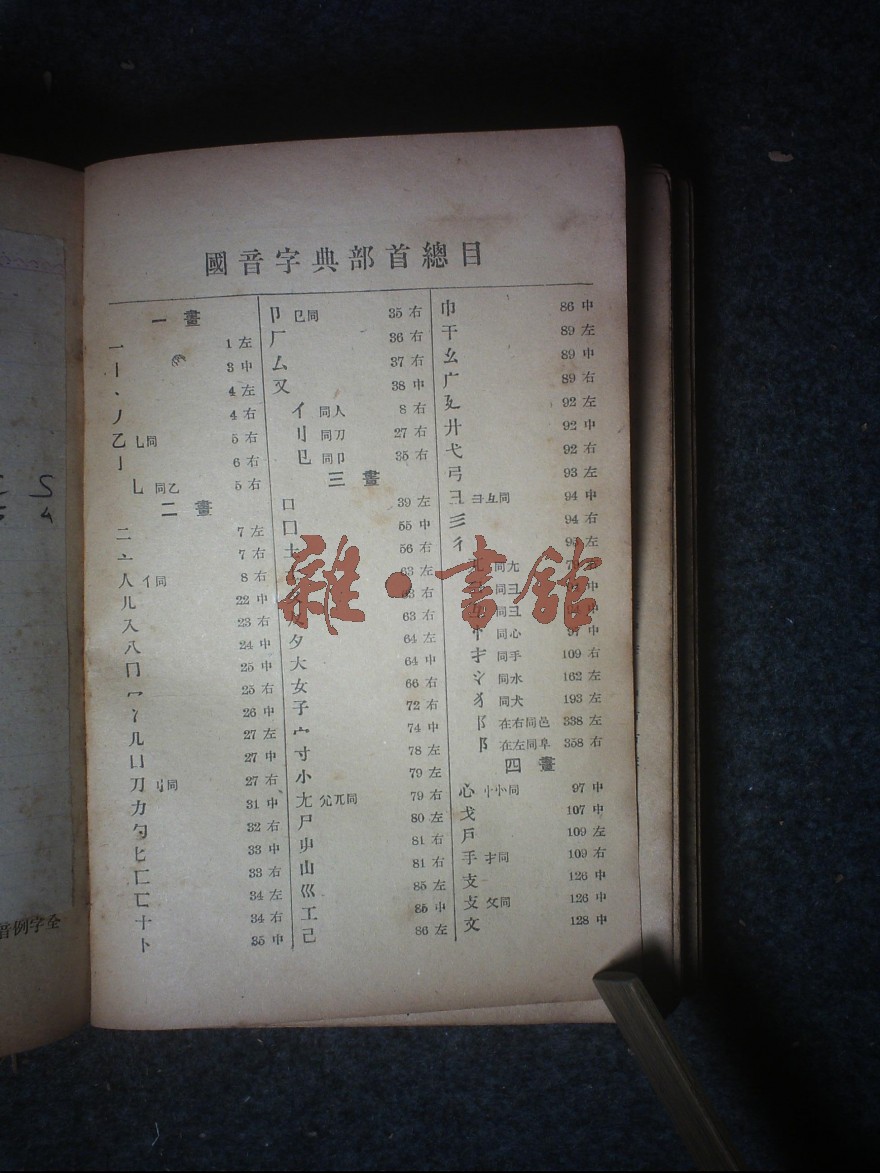 國音字典部首總目
一畫
一 1左
丨 3中
丶 4左
丿 4右
乙 乚同 5右
亅 6右
乚 同乙 5右
二畫
二 7左
亠 7右
人 亻同 8右
儿 22中
入 23右
八 24中
冂 25中
冖 25右
冫 26中
几 27左
凵 27中
刀 刂同 27右
力 31中
勹 32右
匕 33中
匚 33右
匸 34左
十 34右
卜 35中
卩 㔾同 35右
厂 36右
厶 37右
又 38中
亻 同人 8右
刂 同刀 27右
㔾 同卩 35右
三畫
口 39左
囗 55中
土 56右
63左
63右
63右
夕 64左
大 64中
女 66右
子 72右
宀 74中
寸 78左
小 79左
尢 尣兀同 79右
尸 80左
屮 81右
山 81右
巛 85左
工 85中
己 86左
巾 86中
干 89左
幺 89中
广 89右
廴 92左
廾 92中
弋 92右
弓 93左
彐 彑同 94中
彡 94右
彳 95左
同尢
同彐
同彐
忄 同心 97中
扌 同手 109右
氵 同水 162左
犭 同犬 193左
阝 在右同邑 338左
阝 在左同阜 358右
四畫
心 忄㣺同 97中
戈 107中
戶 109左
手 扌同 109右
支 126中
攴 攵同 126中
文 128中
雜·書館
音例字全